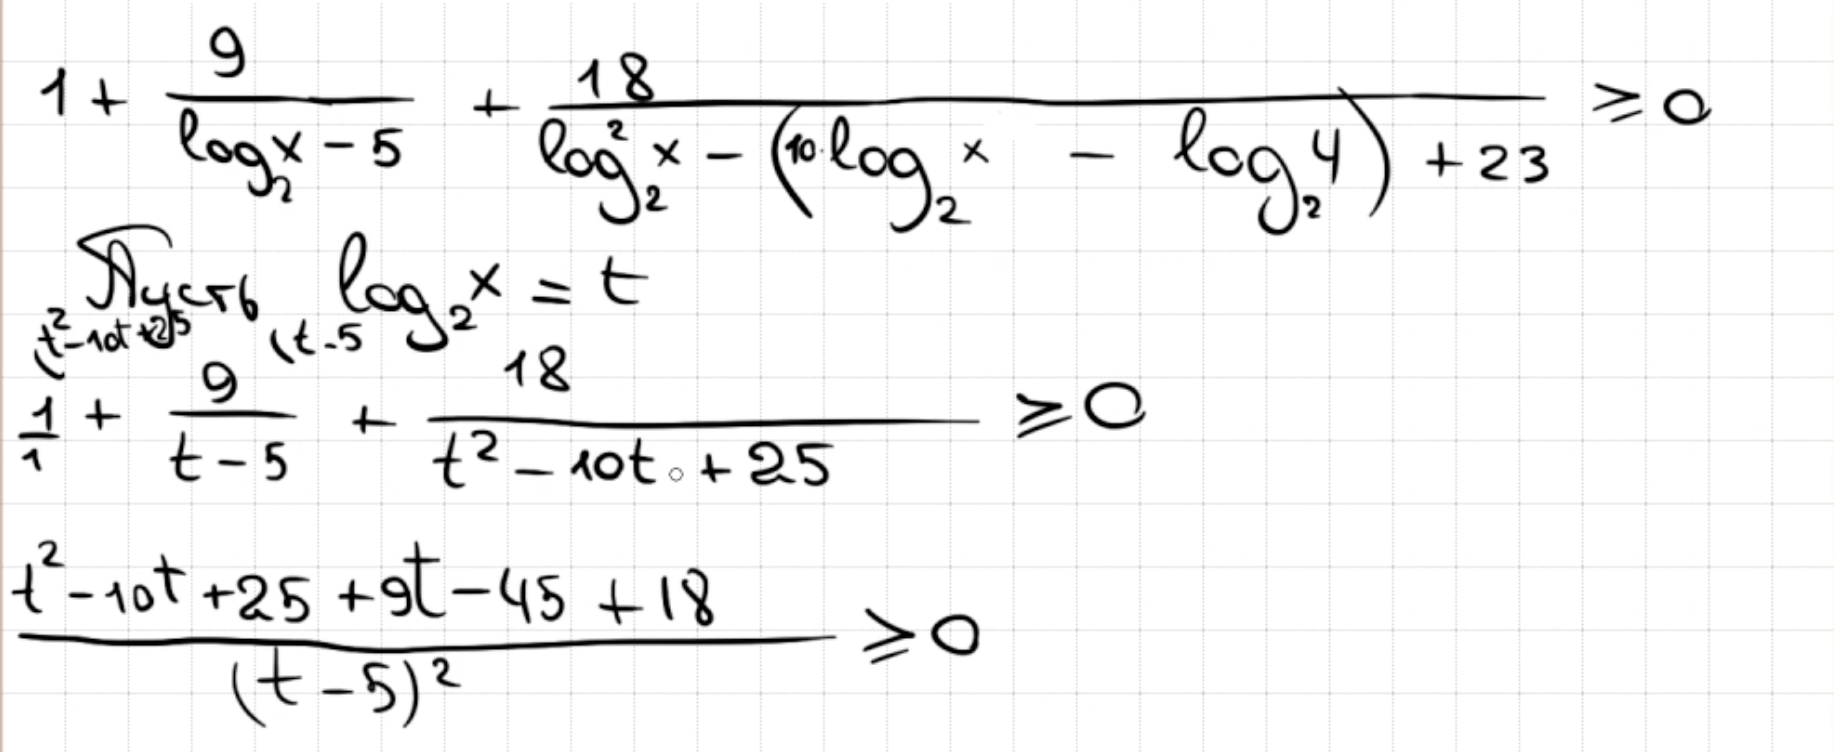 1 + 9/(log₂x − 5) + 18/(log₂²x − (10·log₂x − log₂4) + 23) ⩾ 0
Пусть log₂x = t
(t² − 10t + 25 (t − 5
1/1 + 9/(t − 5) + 18/(t² − 10t + 25) ⩾ 0
(t² − 10t + 25 + 9t − 45 + 18)/(t − 5)² ⩾ 0